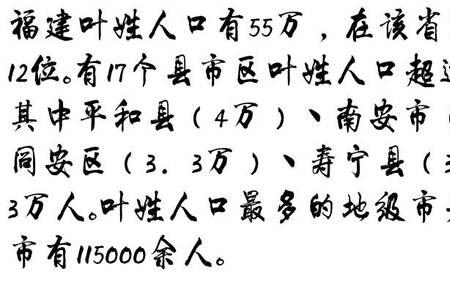 福建叶姓人口有55万，在该省
12位。有17个县市区叶姓人口超
其中平和县（4万）、南安市（
同安区（3．3万）、寿宁县（3
3万人。叶姓人口最多的地级市
市有115000余人。